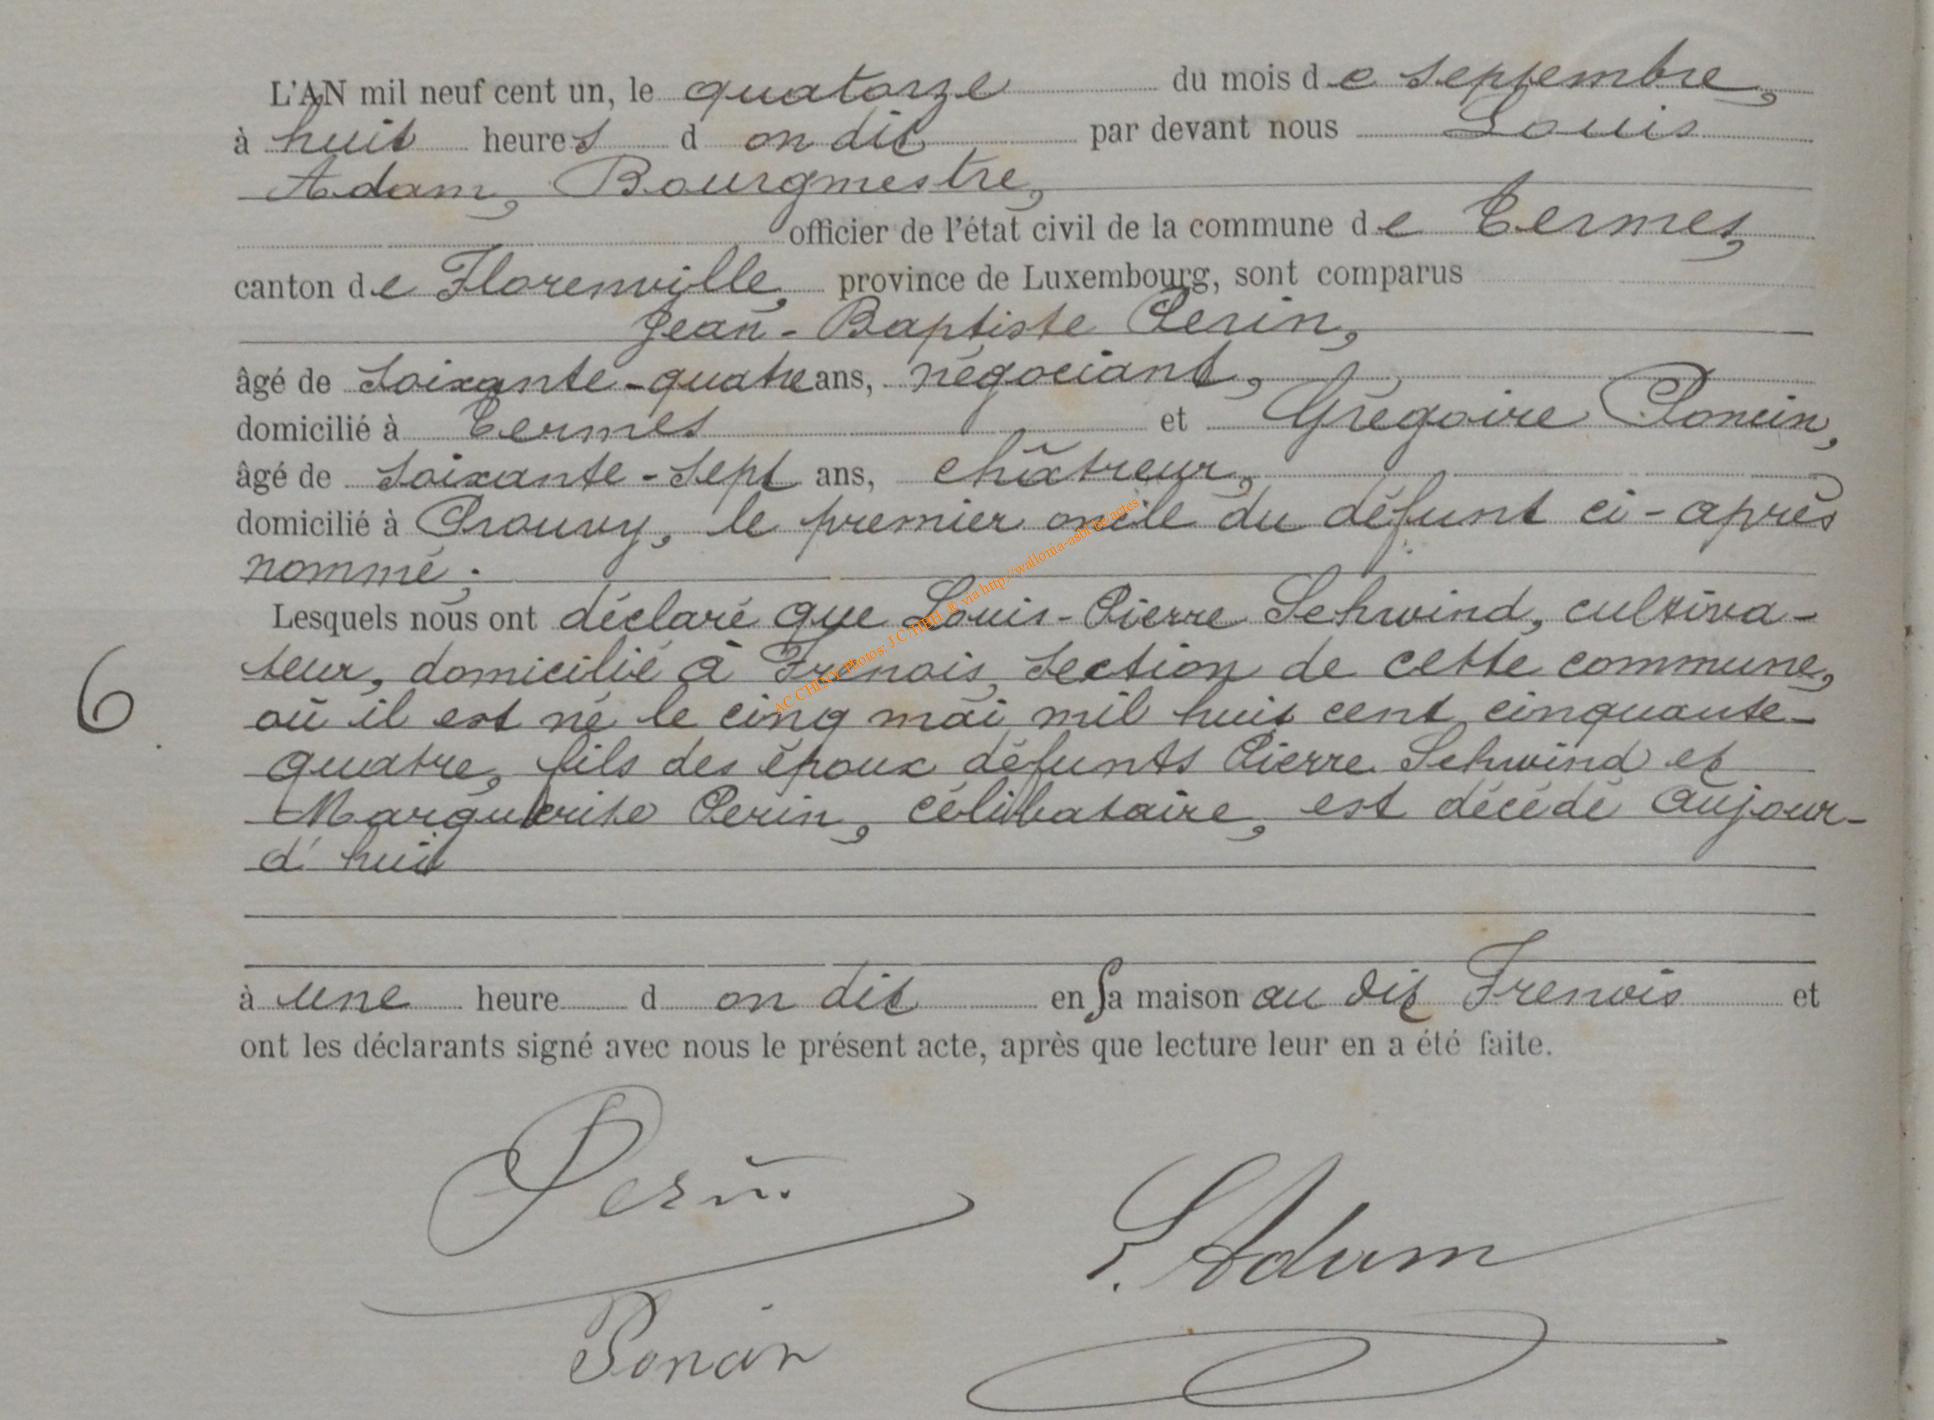 L'AN mil neuf cent un, le quatorze du mois de septembre,
à huit heures d on dit par devant nous Louis
Adam, Bourgmestre,
officier de l'état civil de la commune de Termes,
canton de Florenville, province de Luxembourg, sont comparus
Jean-Baptiste Perin,
âgé de soixante-quatre ans, négociant,
domicilié à Termes et Grégoire Poncin,
âgé de soixante-sept ans, châtreur,
domicilié à Prouvy, le premier oncle du défunt ci-après
nommé;
Lesquels nous ont déclaré que Louis-Pierre Schwind, cultiva-
teur, domicilié à Frenois, section de cette commune,
où il est né le cinq mai mil huit cent cinquante-
quatre, fils des époux défunts Pierre Schwind et
Marguerite Perin, célibataire, est décédé aujour-
d'huit
6
à une heure d on dit en sa maison au dit Frenois et
ont les déclarants signé avec nous le présent acte, après que lecture leur en a été faite.
Perin
L. Adam
Poncin